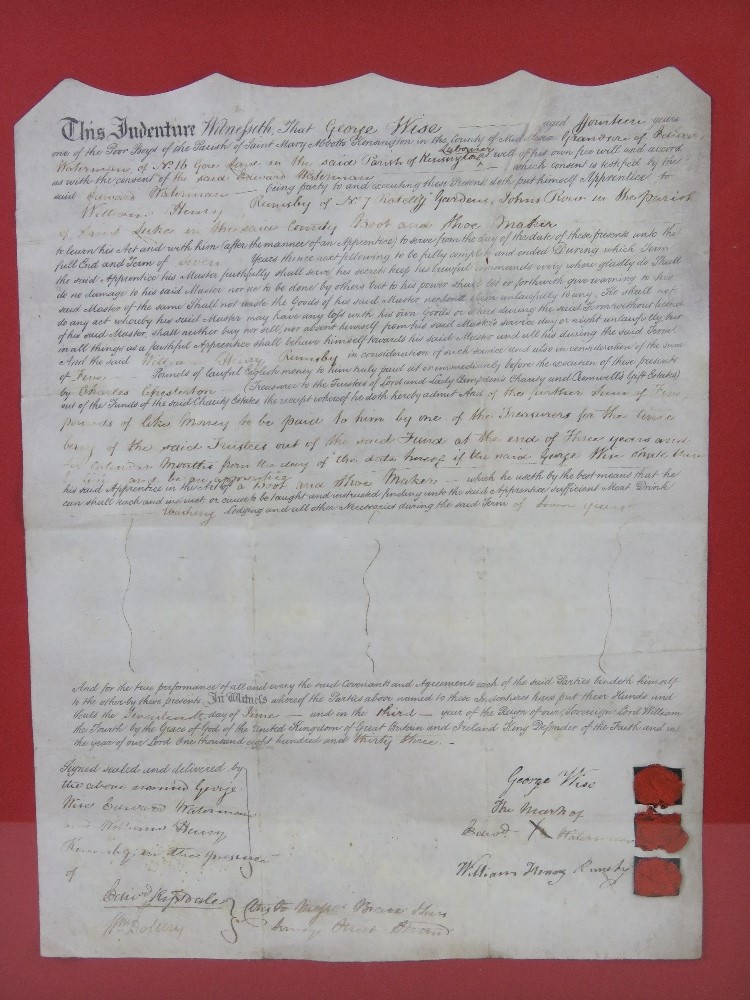 This Indenture Witnesseth, That George Wise aged fourteen years
one of the Poor Boys of the Parish of Saint Mary Abbotts Kensington in the County of Middlesex Grandson of Edward
Waterman of No 16 Gore Lane in the said Parish of Kensington Labourer well of his own free will and accord
as with the consent of the said Edward Waterman which consent is testified by the
said Edward Waterman being party to and executing these Presents doth put himself Apprentice to
William Henry Rumsby of No 7 Gardens, Johns Row in the Parish
of Saint Lukes in the same County Boot and Shoe Maker
to learn his Art and with him (after the manner of an Apprentice) to serve from the day of the date of these presents unto the
full End and Term of seven Years thence next following to be fully complete and ended During which Term
the said Apprentice his Master faithfully shall serve his secrets keep his lawful commands every where gladly do Shall
do no damage to his said Master nor see to be done by others but to his power shall let or forthwith give warning to his
said Master of the same Shall not waste the Goods of his said Master nor lend them unlawfully to any He shall not
do any act whereby his said Master may have any loss with his own Goods or others during the said Term without licence
of his said Master, shall neither buy nor sell, nor absent himself from his said Master's service day or night unlawfully but
in all things as a faithful Apprentice shall behave himself towards his said Master and all his during the said Term
And the said William Henry Rumsby in consideration of such service and also in consideration of the sum
of Five Pounds of lawful English money to him truly paid at or immediately before the execution of these presents
by Charles Chesterton (Treasurer to the Trustees of Lord and Lady Campden's Charity and Cromwell's Gift Estates)
out of the Funds of the said Charity Estates the receipt whereof he doth hereby admit And of the further Sum of Five
pounds of like Money to be paid to him by one of the Treasurers for the time
being of the said Trustees out of the said Fund at the end of Three years and
Calendar Months from the day of the date hereof if the said George Wise shall then
be an apprentice
his said Apprentice in the Art of a Boot and Shoe Maker which he useth by the best means that he
can shall teach and instruct or cause to be taught and instructed finding unto the said Apprentice sufficient Meat Drink
Washing Lodging and all other Necessaries during the said Term of Seven years
And for the true performance of all and every the said Covenants and Agreements each of the said Parties bindeth himself
to the other by these presents In Witness whereof the Parties above named to these Indentures have put their Hands and
Seals the day of June and in the third year of the Reign of our Sovereign Lord William
the Fourth by the Grace of God of the United Kingdom of Great Britain and Ireland King Defender of the Faith and in
the year of our Lord One thousand eight hundred and thirty three.
Signed sealed and delivered by
the above named George
Wise Edward Waterman
and William Henry
Rumsby in the presence
of
George Wise
The Mark of
Edwd. X Waterman
William Henry Rumsby
Street Strand